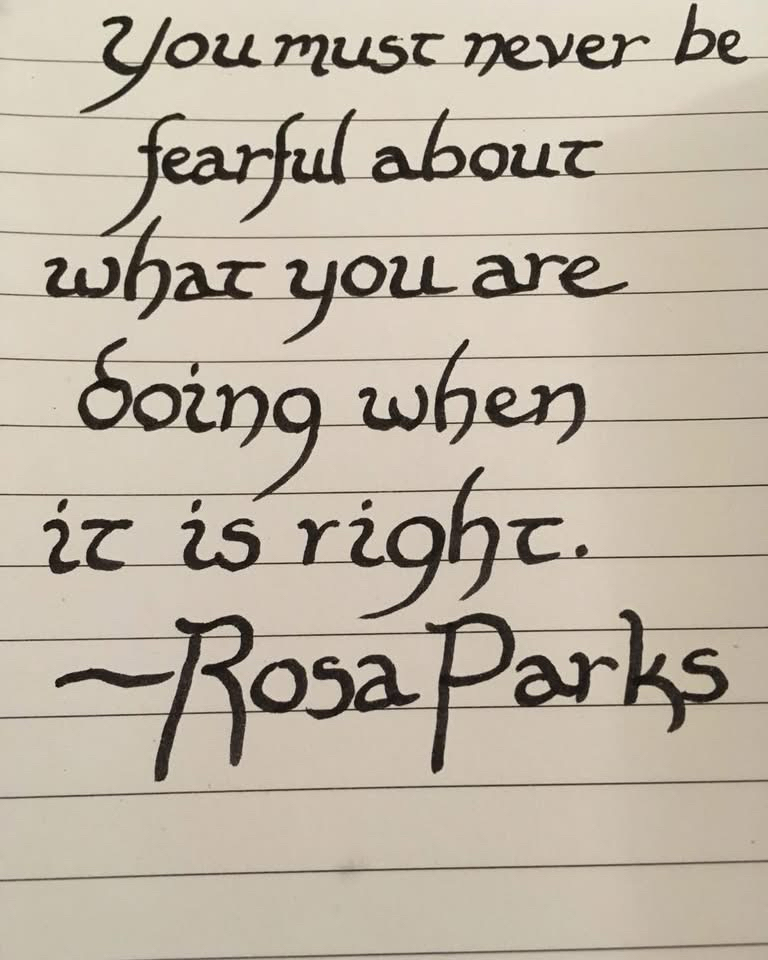 You must never be
fearful about
what you are
doing when
it is right.
~Rosa Parks